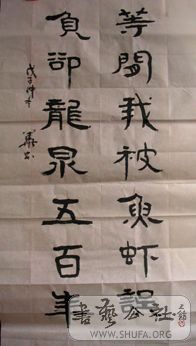 等閒我被魚蝦誤
負卻龍泉五百年
戊子仲冬
書藝公社
WWW.SHUFA.ORG